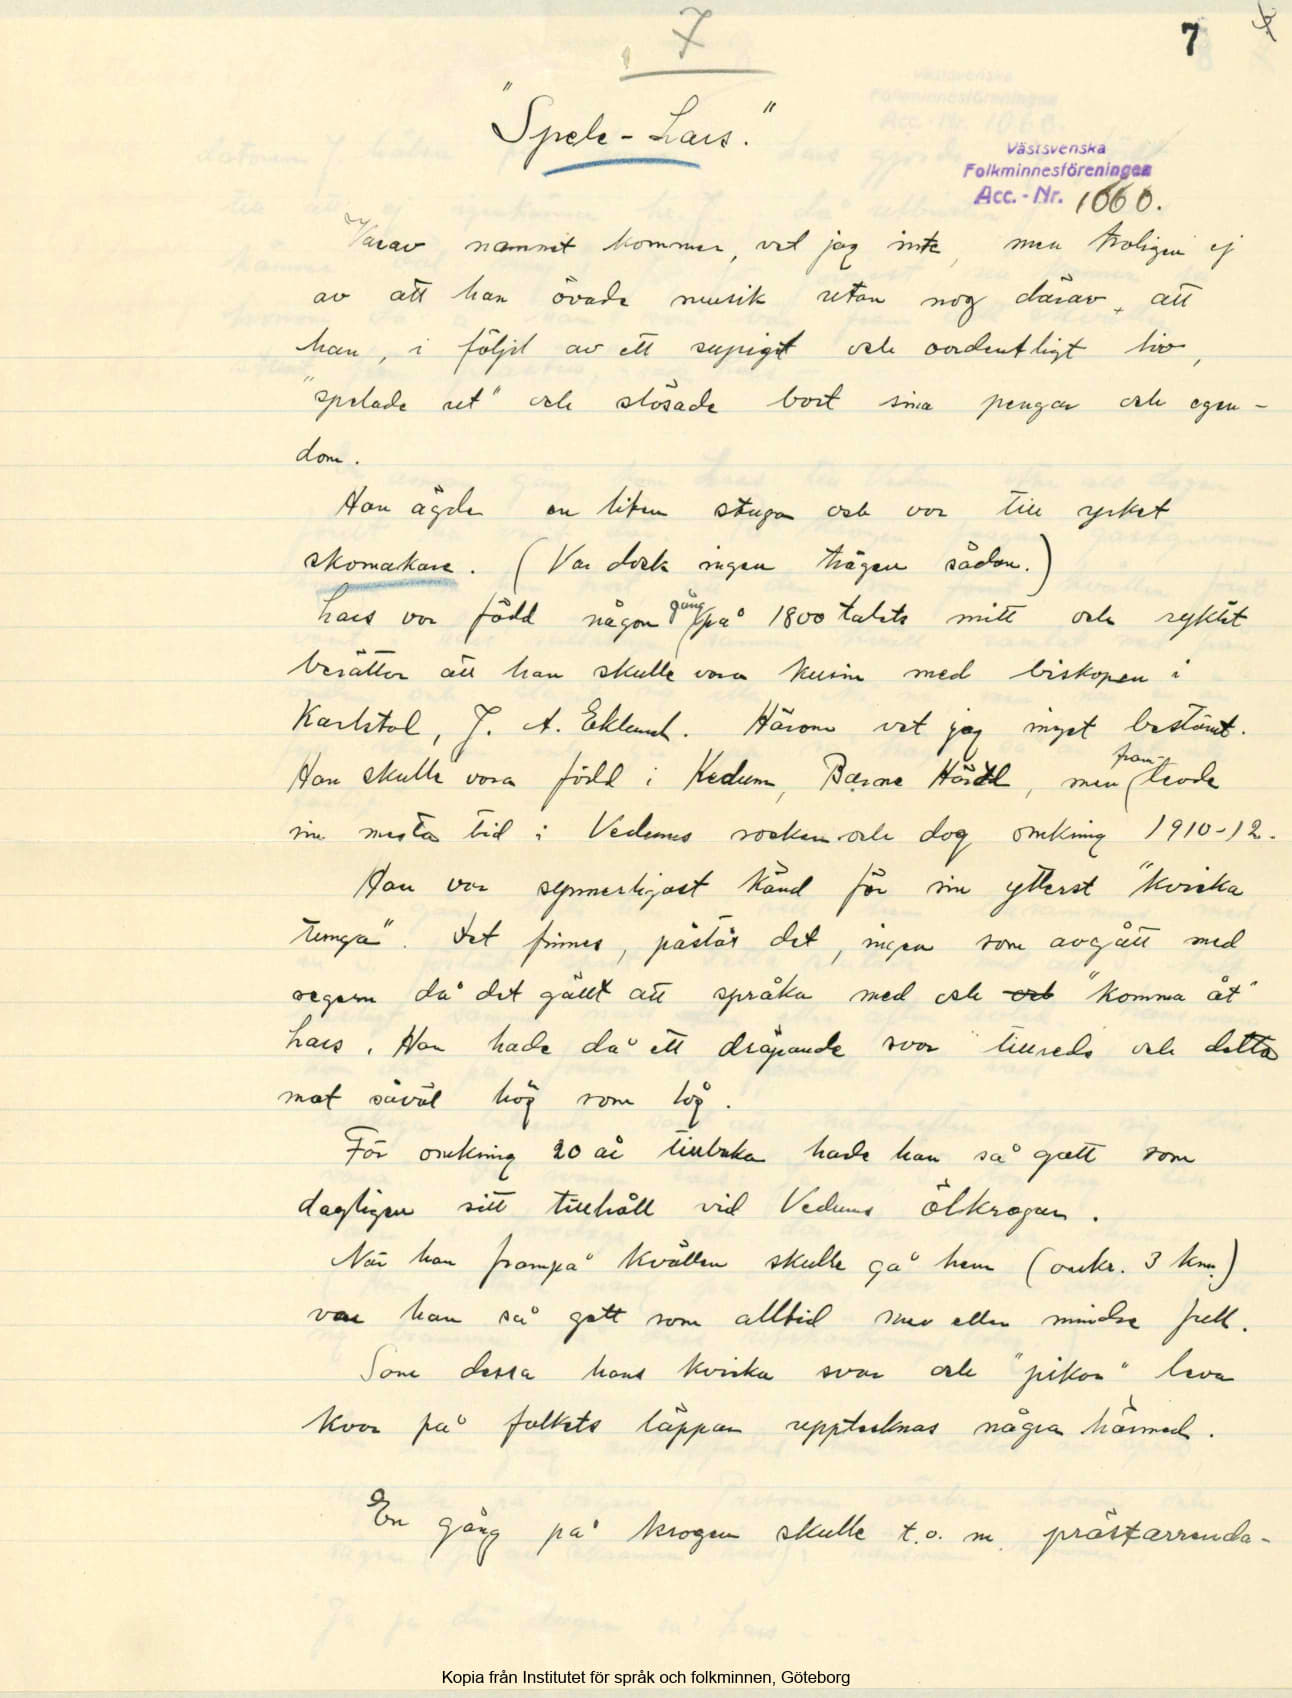 7
7
"Spele-Lars."
Västsvenska
Folkminnesföreningen
Acc.-Nr. 1060.
Varav namnet kommer, vet jag inte, men troligen ej
av att han övade musik utan nog därav, att
han, i följd av ett supigt och oordentligt liv,
"spelade ut" och slösade bort sina pengar och egen-
dom.
Han ägde en liten stuga och var till yrket
skomakare. (Var dock ingen trägen sådan.)
Lars var född någon gång på 1800 talets mitt och ryktet
berättar att han skulle vara kusin med biskopen i
Karlstad, J. A. Eklund. Härom vet jag inget bestämt.
Han skulle vara född i Kedum, Barne Härad, men fram-levde
sin mesta tid i Vedums socken och dog omkring 1910-12.
Han var synnerligast känd för sin ytterst "kvicka
tunga". Det finnes, påstås det, ingen som avgått med
segern då det gällt att språka med och och "komma åt"
Lars. Han hade då ett dräpande svar tillreds och detta
mot såväl hög som låg.
För omkring 20 år tillbaka hade han så gott som
dagligen sitt tillhåll vid Vedums ölkrogar.
När han frampå kvällen skulle gå hem (omkr. 3 km.)
var han så gott som alltid mer eller mindre full.
Som dessa hans kvicka svar och "pikar" leva
kvar på folkets läppar upptecknas några härmed.
En gång på krogen skulle t.o.m. prästarrenda-
Kopia från Institutet för språk och folkminnen, Göteborg